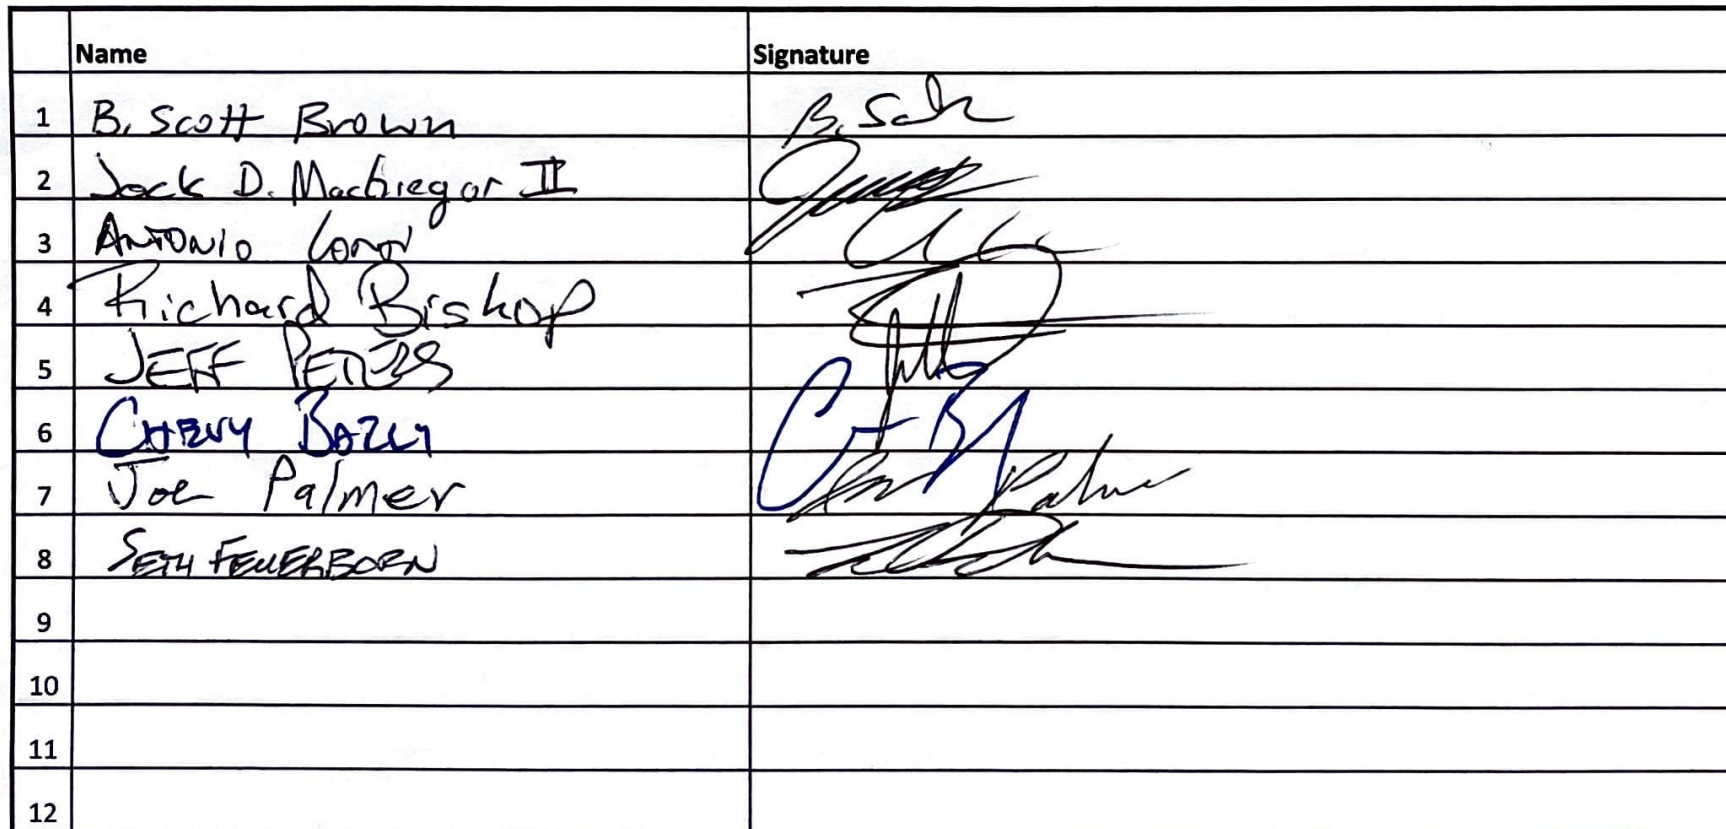 Name Signature
1 B. Scott Brown B. Sch
2 Jack D. MacGregor II
3 ANTONIO
4 Richard Bishop
5 JEFF PETERS
6 CHEVY
7 Joe Palmer Joe Palmer
8 SETH FEUERBORN
9
10
11
12